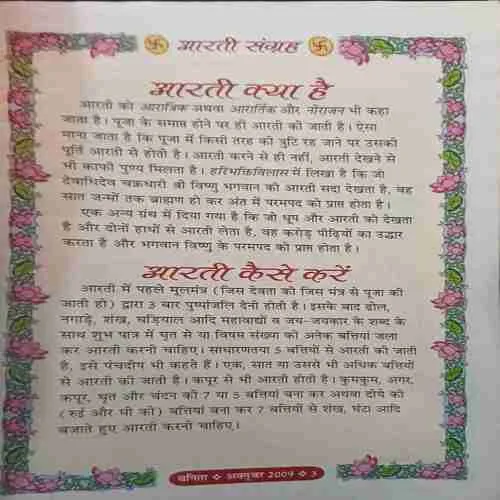 आरती संग्रह
आरती क्या है
आरती को आरात्रिक अथवा आरार्तिक और नीराजन भी कहा
जाता है। पूजा के समाप्त होने पर ही आरती की जाती है। ऐसा
माना जाता है कि पूजा में किसी तरह की त्रुटि रह जाने पर उसकी
पूर्ति आरती से होती है। आरती करने से ही नहीं, आरती देखने से
भी काफी पुण्य मिलता है। हरिभक्तिविलास में लिखा है कि जो
देवाधिदेव चक्रधारी श्री विष्णु भगवान की आरती सदा देखता है, वह
सात जन्मों तक ब्राह्मण हो कर अंत में परमपद को प्राप्त होता है।
एक अन्य ग्रंथ में दिया गया है कि जो धूप और आरती को देखता
है और दोनों हाथों से आरती लेता है, वह करोड़ पीढ़ियों का उद्धार
करता है और भगवान विष्णु के परमपद को प्राप्त होता है।
आरती कैसे करें
आरती में पहले मूलमंत्र (जिस देवता की जिस मंत्र से पूजा की
जाती हो) द्वारा 3 बार पुष्पांजलि देनी होती है। इसके बाद ढोल,
नगाड़े, शंख, घड़ियाल आदि महावाद्यों व जय-जयकार के शब्द के
साथ शुभ पात्र में घृत से या विषम संख्या की अनेक बत्तियां जला
कर आरती करनी चाहिए। साधारणतया 5 बत्तियों से आरती की जाती
है, इसे पंचदीप भी कहते हैं। एक, सात या उससे भी अधिक बत्तियों
से आरती की जाती है। कपूर से भी आरती होती है। कुमकुम, अगर,
कपूर, घृत और चंदन की 7 या 5 बत्तियां बना कर अथवा दीये की
(रुई और घी की) बत्तियां बना कर 7 बत्तियों से शंख, घंटा आदि
बजाते हुए आरती करनी चाहिए।
वनिता ❖ अक्तूबर 2009 ❖ 3